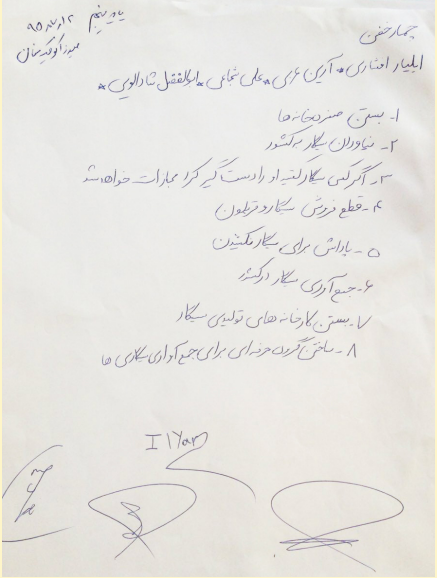 پایه پنجم ۹۵/۷/۱۲
چهار نفری
ایلیار افشاری * آرین عربی * علی شجاعی * ابوالفضل شادالویی *
۱- بستن سفره خانه ها
۲- نیاوردن سیگار به کشور
۳- اگر کسی سیگار کشید او را دستگیر کرد مجازات خواهد شد
۴- قطع فروش سیگار و قلیون
۵- پاداش برای سیگار نکشیدن
۶- جمع آوری سیگار در کشور
۷- بستن کارخانه های تولیدی سیگار
۸- ساختن گروه حرفه ای برای جمع آوری سیگاری ها
Ilyar